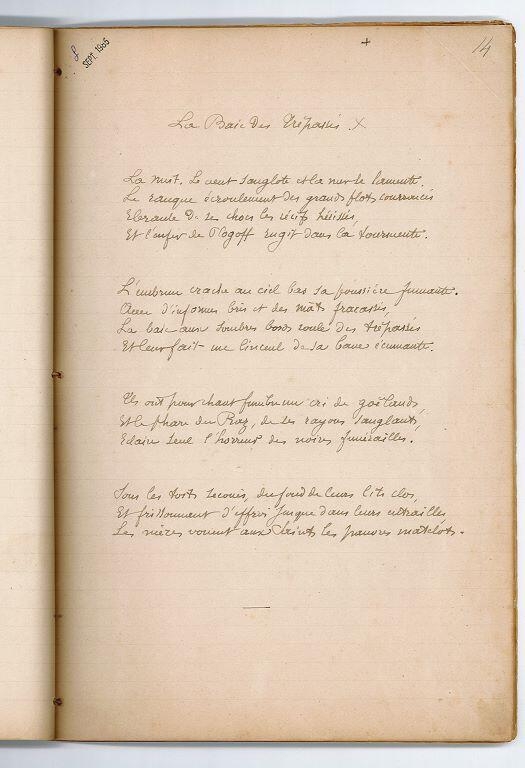 SEPT. 1986
+
14
La Baie des Trépassés X
La nuit. Le vent sanglote et la mer se lamente.
Le rauque écroulement des grands flots courroucés
Ebranle de ses chocs les récifs hérissés,
Et l'enfer de Plogoff rugit dans la tourmente.
L'embrun crache au ciel bas sa poussière fumante.
Avec d'informes bris et des mâts fracassés,
La baie aux sombres bords roule des trépassés
Et leur fait une linceul de sa bave écumante.
Ils ont pour chant funèbre un cri de goëlands
Et le phare du Raz, de ses rayons sanglants,
Eclaire seul l'horreur des noires funérailles.
Sous les toits secoués, du fond de leurs lits clos,
Et frissonnant d'effroi jusque dans leurs entrailles
Les mères vouent aux Saints les pauvres matelots.